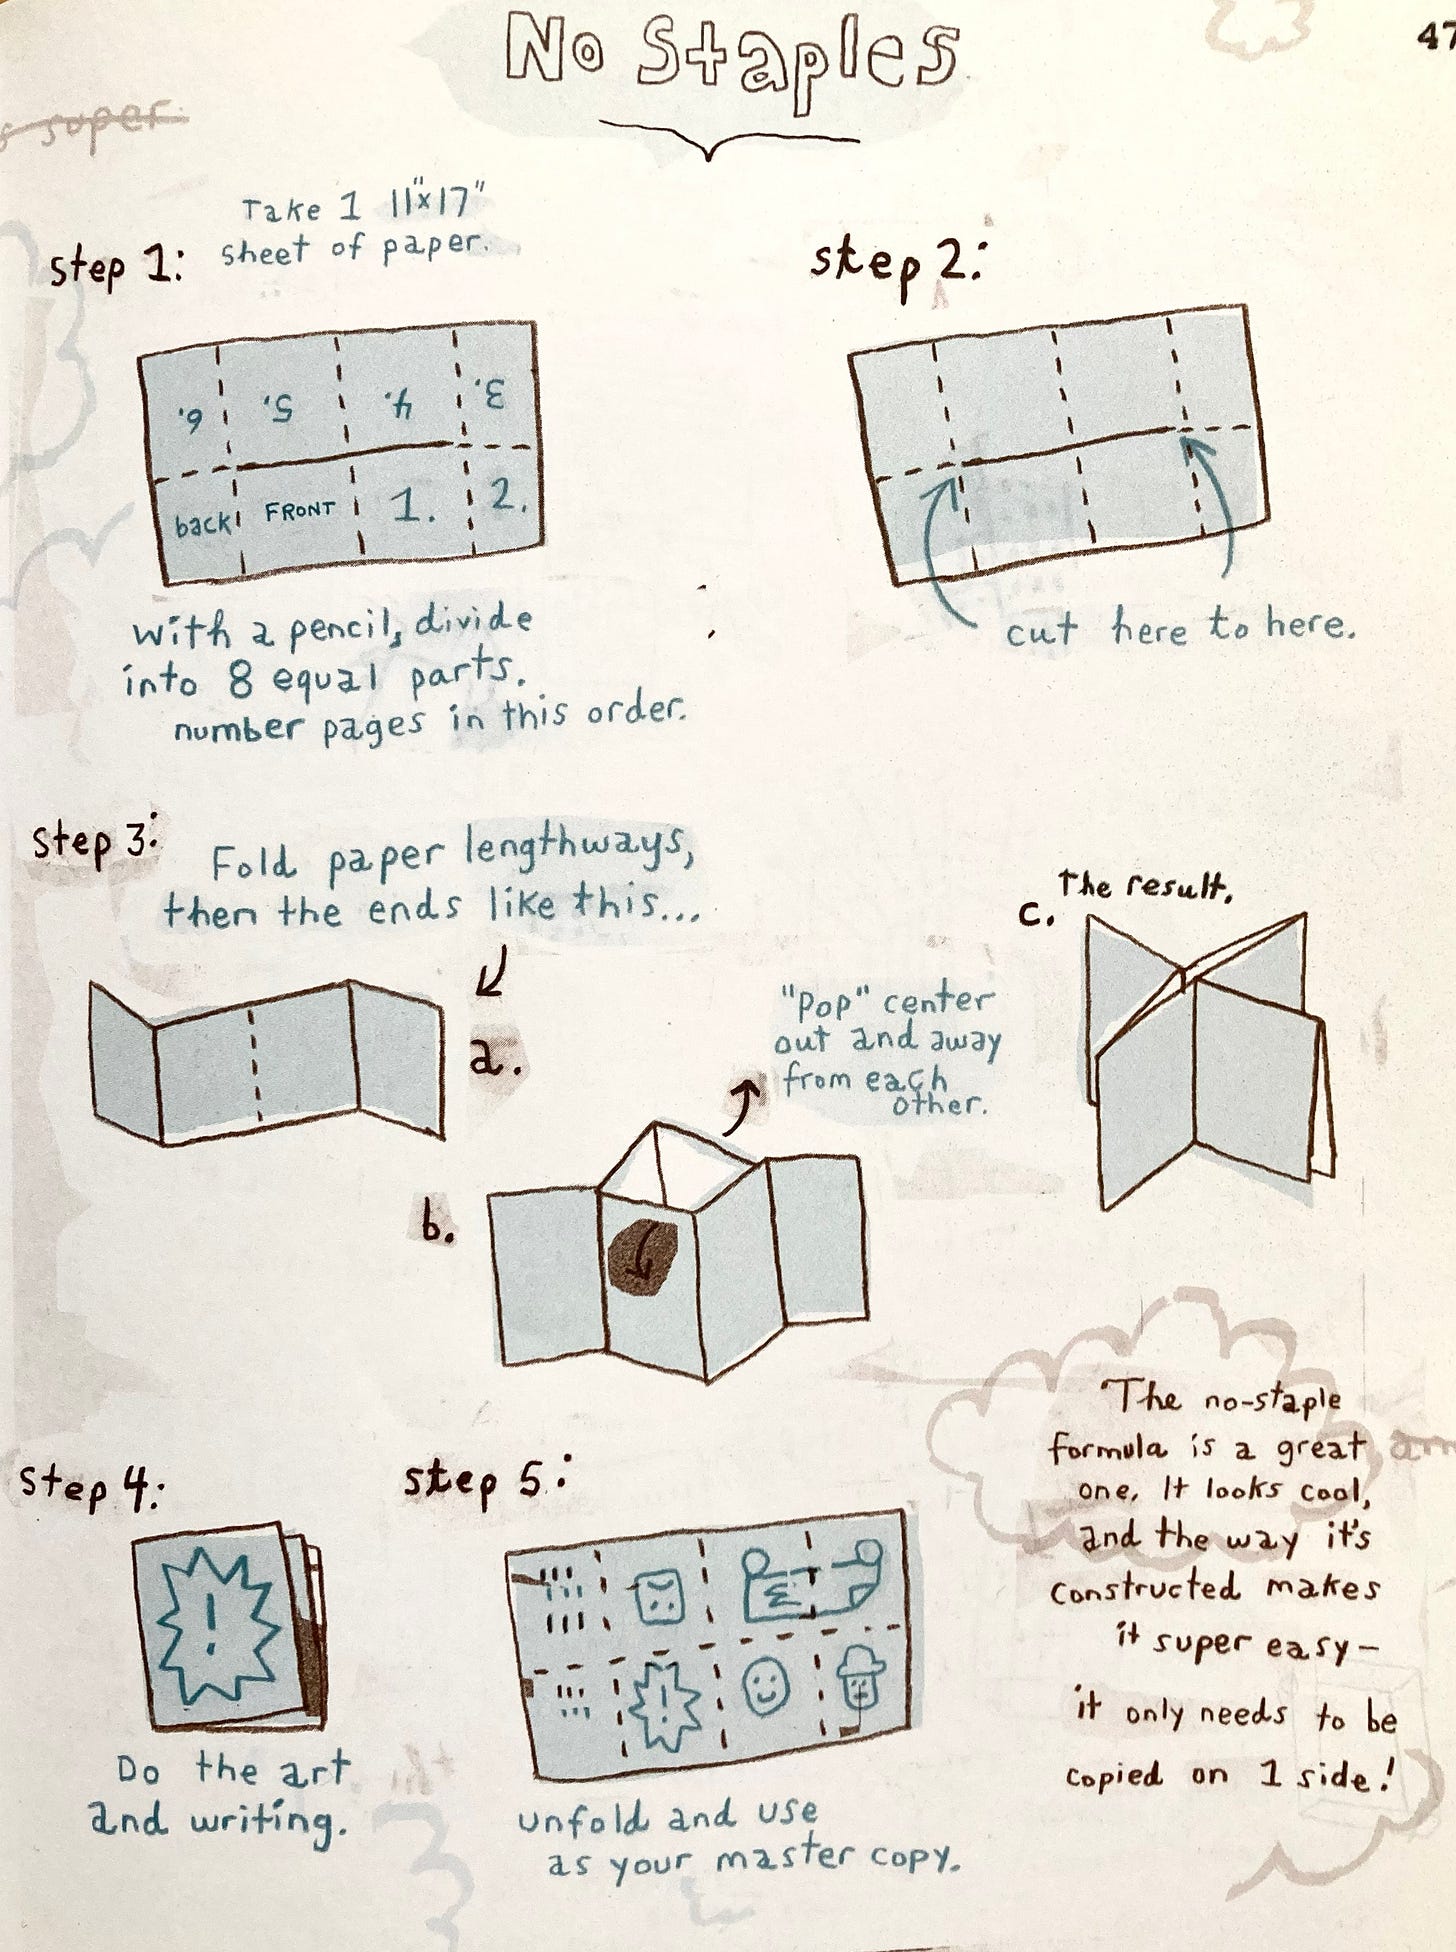 No Staples
47
super
step 1:
Take 1 11"x17"
sheet of paper.
6. 5. 4. 3.
back FRONT 1. 2.
with a pencil, divide
into 8 equal parts.
number pages in this order.
step 2:
cut here to here.
step 3:
Fold paper lengthways,
then the ends like this...
a.
b.
"Pop" center
out and away
from each
other.
c.
The result.
step 4:
!
Do the art
and writing.
step 5:
!
unfold and use
as your master copy.
The no-staple
formula is a great
one. It looks cool,
and the way it's
constructed makes
it super easy—
it only needs to be
copied on 1 side!